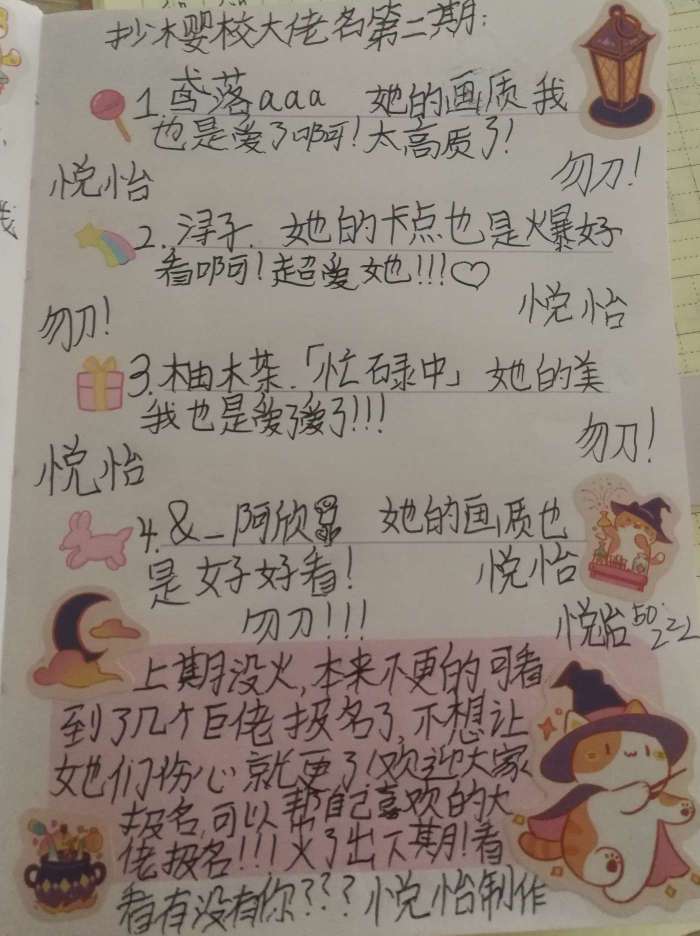 抄樱校大佬名第二期:
1.鸢落aaa 她的画质我
也是爱了啊!太高质了!
悦怡
勿刀!
2.浔子. 她的卡点也是爆好
看啊!超爱她!!!♡
悦怡
勿刀!
3.柚木茶.「忙碌中」 她的美
我也是爱了爱了!!!
勿刀!
悦怡
4.&_阿欣 她的画质也
是好好看!
悦怡
勿刀!!!
悦怡
上期没火,本来不更的可看
到了几个巨佬报名了,不想让
她们伤心就更了!欢迎大家
报名,可以帮自己喜欢的大
佬报名!!!火了出下期!看
看有没有你???悦怡制作